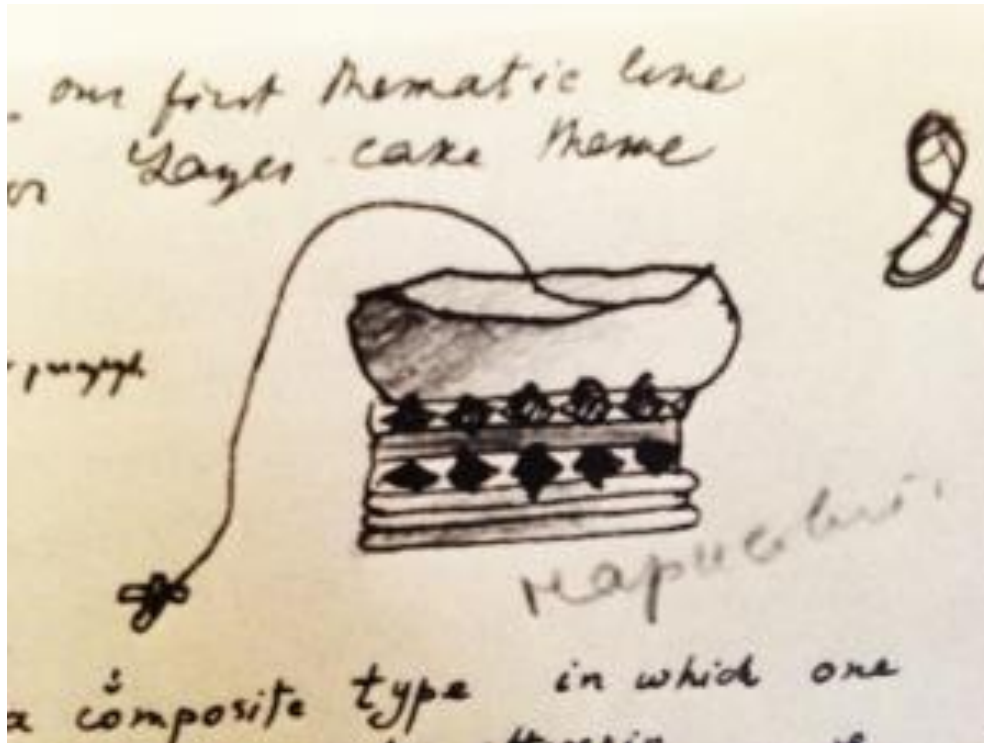 our first thematic line
or Layer cake theme
a composite type in which one